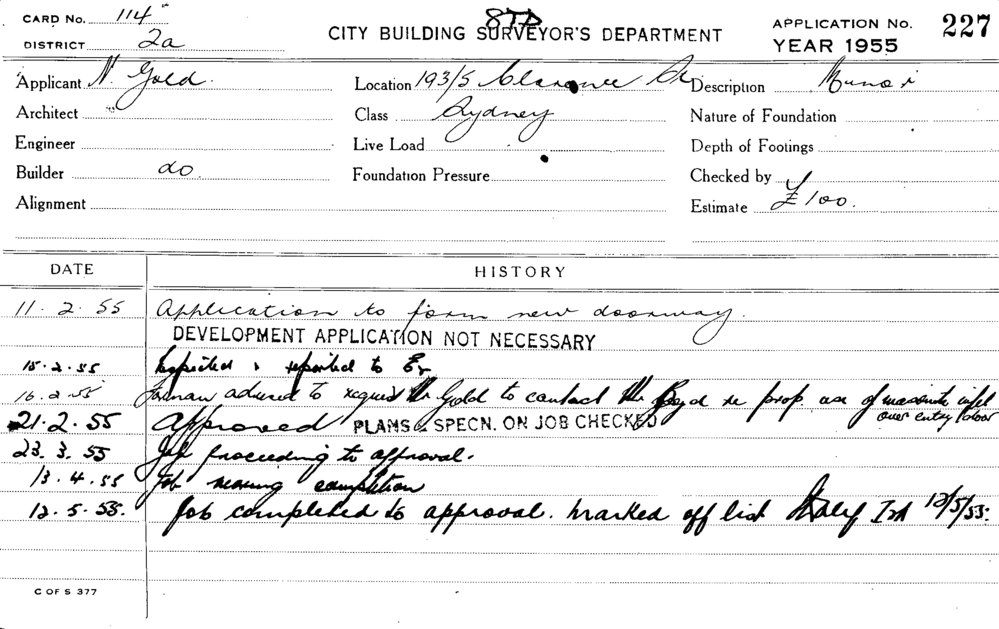 CARD No. 114
DISTRICT 2a
STD
CITY BUILDING SURVEYOR'S DEPARTMENT
APPLICATION No. 227
YEAR 1955
Applicant N. Gold.
Location 193/5 Clarence St
Description
Architect
Class Sydney
Nature of Foundation
Engineer
Live Load
Depth of Footings
Builder do.
Foundation Pressure
Checked by
Alignment
Estimate £100.
DATE
HISTORY
11. 2. 55 Application to form new doorway.
DEVELOPMENT APPLICATION NOT NECESSARY
15.2.55 Inspected & reported to
16.2.55 advised to request Mr Gold to contact Mr Boyd re prop. use of masonite
over entry door
21.2.55 Approved PLANS & SPECN. ON JOB CHECKED
23.3.55 Job proceeding to approval.
13.4.55 Job nearing completion
12.5.55. Job completed to approval. Marked off list 12/5/55.
C OF S 377